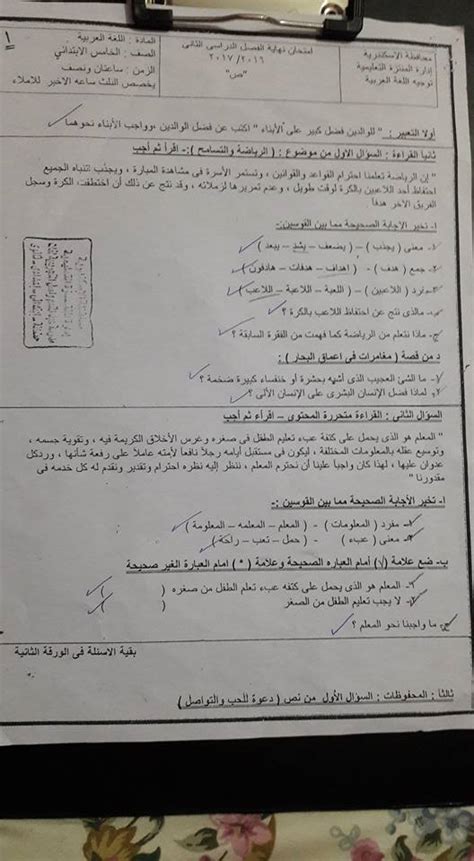 محافظة الاسكندرية
إدارة المنتزة التعليمية
توجيه اللغة العربية
امتحان نهاية الفصل الدراسى الثانى
٢٠١٦ / ٢٠١٧
"ص"
المادة : اللغة العربية
الصف : الخامس الابتدائي
الزمن : ساعتان ونصف
يخصص الثلث ساعه الاخير للاملاء
١
أولا التعبير : " للوالدين فضل كبير على الأبناء " اكتب عن فضل الوالدين ،وواجب الأبناء نحوهما
ثانيا القراءة : السؤال الاول من موضوع : ( الرياضة والتسامح ):- اقرأ ثم أجب
" إن الرياضة تعلمنا احترام القواعد والقوانين ، وتستمر الأسرة فى مشاهدة المبارة ، ويجذب انتباه الجميع
احتفاظ أحد اللاعبين بالكرة لوقت طويل ، وعدم تمريرها لزملائه ، وقد نتج عن ذلك أن اختطفت الكرة وسجل
الفريق الآخر هدفاً .
ا- تخير الاجابة الصحيحة مما بين القوسين:-
١- معنى ( يجذب ) – ( يضعف – يشد – يبعد )
٢- جمع ( هدف ) - ( اهداف – هدفات – هادفون )
٣- مفرد ( اللاعبين ) – ( اللعبة – اللاعبة – اللاعب )
ب- مالذى نتج عن احتفاظ اللاعب بالكرة ؟
ج- ماذا نتعلم من الرياضة كما فهمت من الفقرة السابقة ؟
د من قصة ( مغامرات فى اعماق البحار ) :
١- ما الشئ العجيب الذى أشبه بحشرة أو خنفساء كبيرة ضخمة ؟
٢- لماذا فضل الإنسان البشرى على الإنسان الألى ؟
السؤال الثانى : القراءة متحررة المحتوى – اقراء ثم أجب
" المعلم هو الذى يحمل على كتفة عبء تعليم الطفل فى صغره وغرس الأخلاق الكريمة فيه ، وتقوية جسمه ،
وتوسيع عقله بالمعلومات المختلفة ، ليكون فى مستقبل أيامه رجلاً نافعاً لأمته عاملاً على رفعة شأنها ، وردكل
عدوان عليها ، لهذا كان واجباً علينا أن نحترم المعلم ، ننظر إليه نظره احترام وتقدير ونقدم له كل خدمه فى
مقدورنا "
ا- تخير الأجابة الصحيحة مما بين القوسين :
١- مفرد ( المعلومات ) - ( المعلم – المعلمه – المعلومة )
٢- معنى ( عبء ) - ( حمل – تعب – راحة )
ب- ضع علامة (√) أمام العباره الصحيحة وعلامة ( * ) امام العبارة الغير صحيحة
١- المعلم هو الذى يحمل على كتفه عبء تعلم الطفل من صغره ( )
٢- لا يجب تعليم الطفل من الصغر ( )
ج- ما واجبنا نحو المعلم ؟
بقية الاسئلة فى الورقة الثانية
ثالثاً : المحفوظات : السؤال الأول من نص ( دعوة للحب والتواصل )